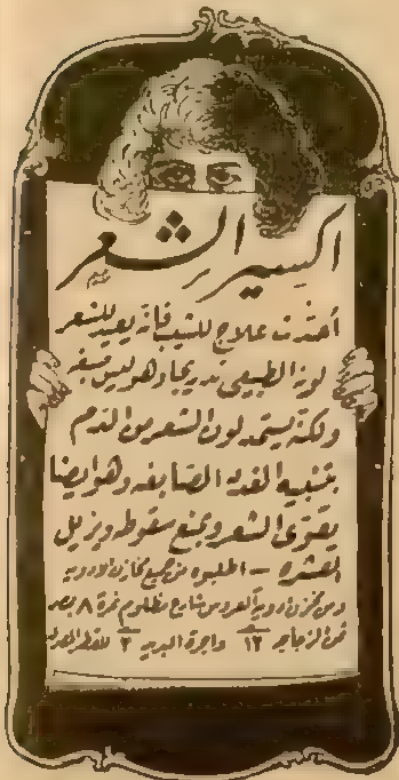 اكسير الشعر
أحدث علاج للشيب فانه يعيد للشعر
لونه الطبيعى تدريجا وهو ليس صبغه
ولكنه يستمد لون الشعر من الدم
بتنبيه الغدد الصابغه وهو ايضا
يقوى الشعر ويمنع سقوطه ويزيل
القشره — اطلبوه من جميع مخازن الادويه
ومن مخزن ادوية العروس شارع مظلوم نمرة ٨ بمصر
ثمن الزجاجه ١٢ واجرة البريد ٢ للقطر المصرى